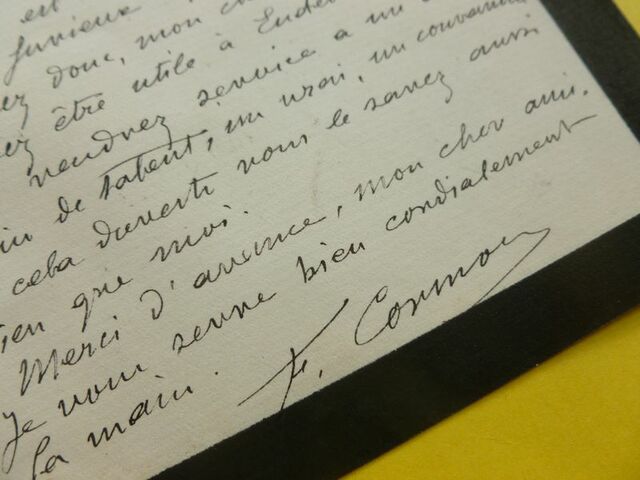 est
furieux
donc, mon
être utile à
rendrez service à un
de talent, un vrai, un convaincu
cela devrait vous le savez aussi
bien que moi.
Merci d'avance, mon cher ami.
Je vous serre bien cordialement
la main.
F. Cormon